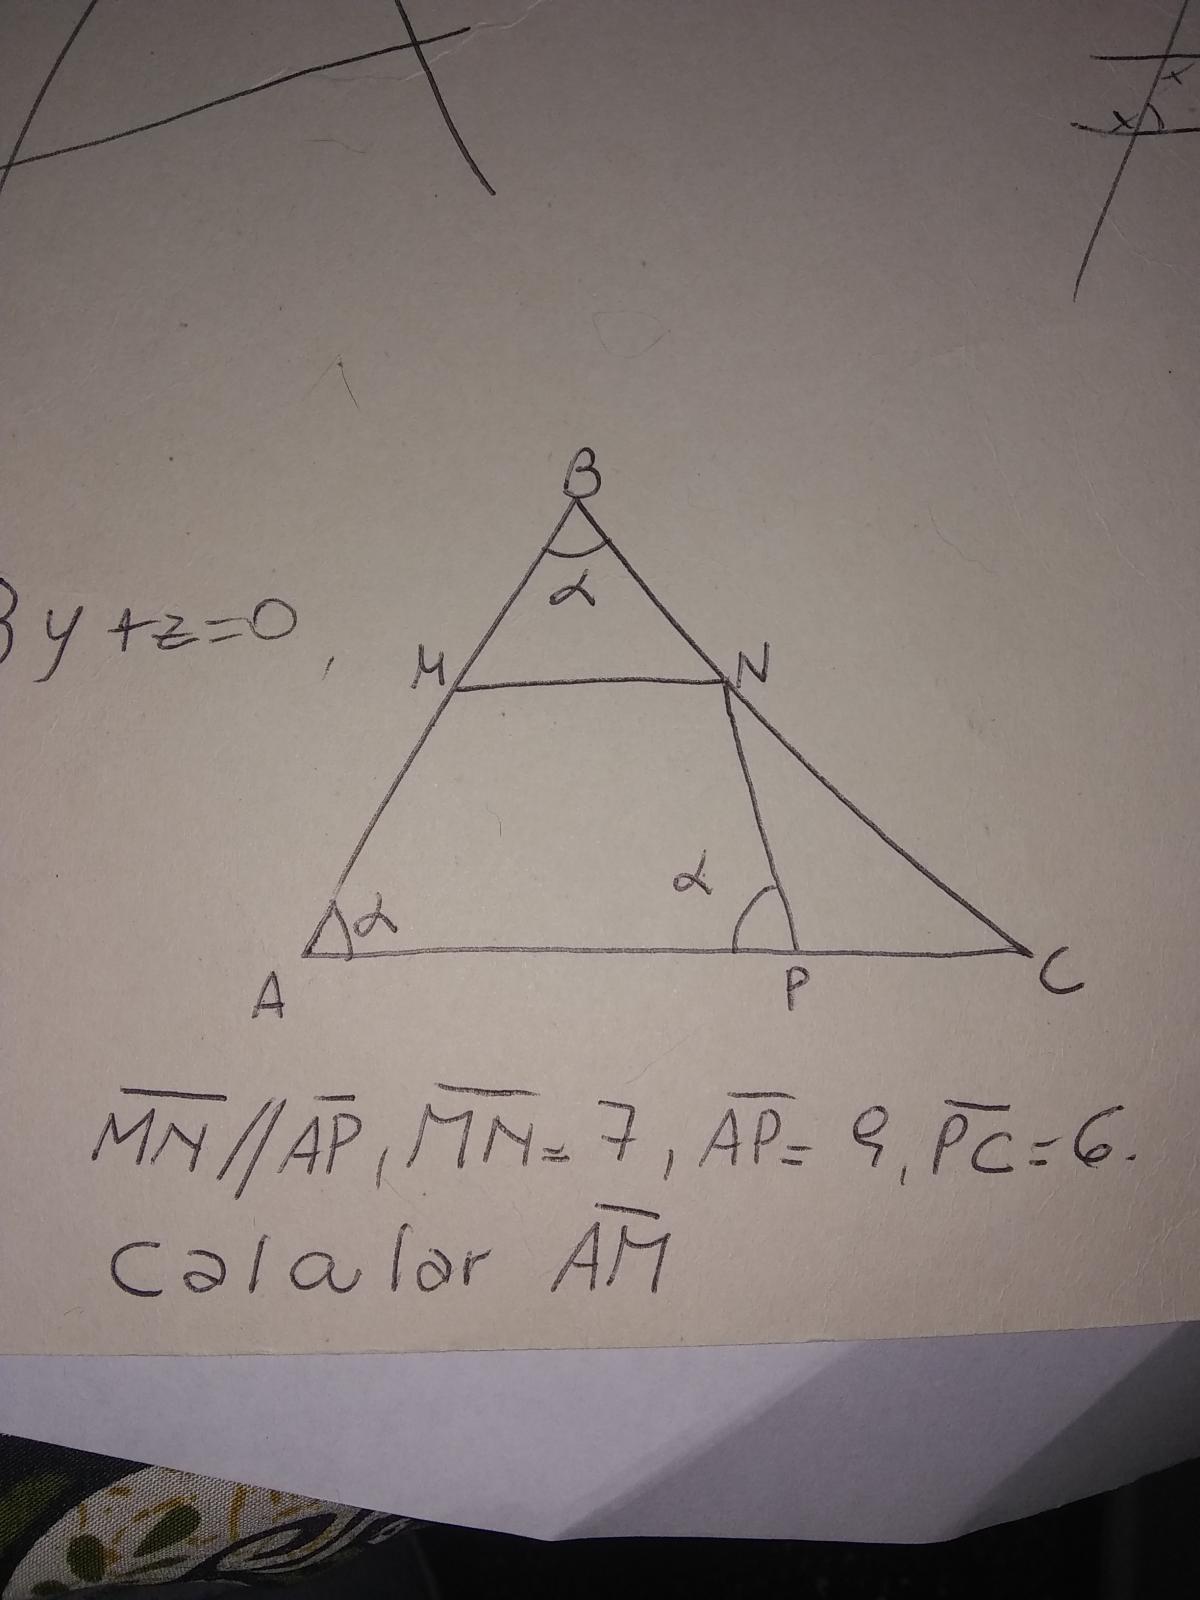 x
x
B
α
3y+z=0,
M N
α
α
A P C
MN//AP, MN=7, AP=9, PC=6.
Calcular AM